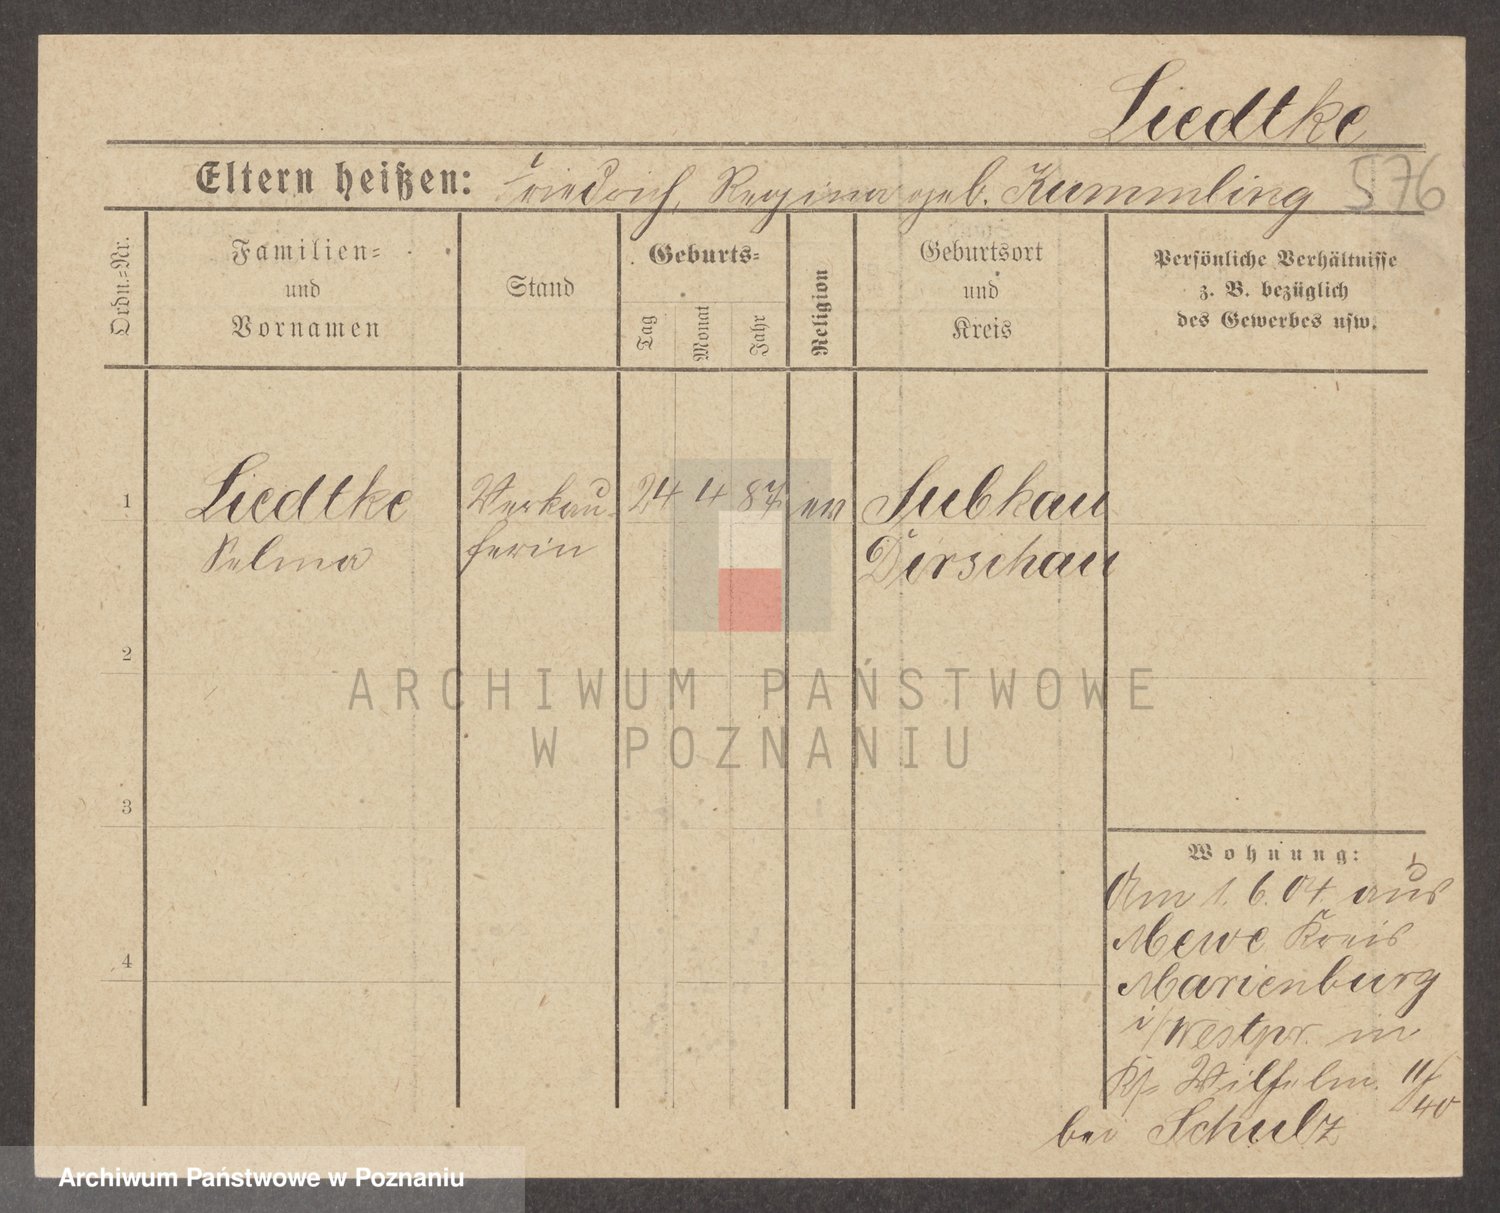 Liedtke
Eltern heißen: Friedrich, Regina geb. Kummling 576
Ordn.=Nr.
Familien=
und
Vornamen
Stand
Geburts=
Tag
Monat
Jahr
Religion
Geburtsort
und
Kreis
Persönliche Verhältnisse
z. B. bezüglich
des Gewerbes usw.
1 Liedtke Verkäu- 24 4 87 ev Subkau
Selma ferin Dirschau
2
3
4
Wohnung:
Am 1. 6. 04. aus
Mewe Kreis
Marienburg
i/Westpr. in
Wilhelm. 11/40
bei Schulz
ARCHIWUM PAŃSTWOWE
W POZNANIU
Archiwum Państwowe w Poznaniu